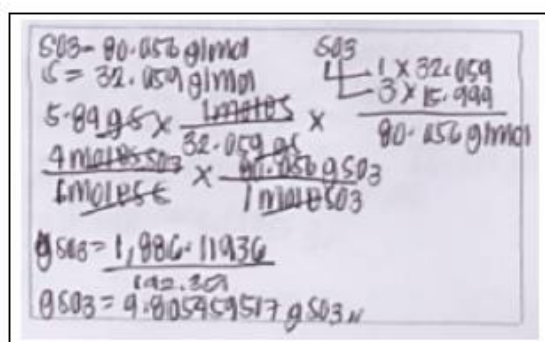 SO3 = 80.056 g/mol
S = 32.059 g/mol
SO3
1 x 32.059
3 x 15.999
80.056 g/mol
5.89 g S x 1 mole S x
32.059 g S
4 moles SO3 x 80.056 g SO3
6 moles S 1 mole SO3
g SO3 = 1,886.11936
192.354
g SO3 = 9.805459517 g SO3 //